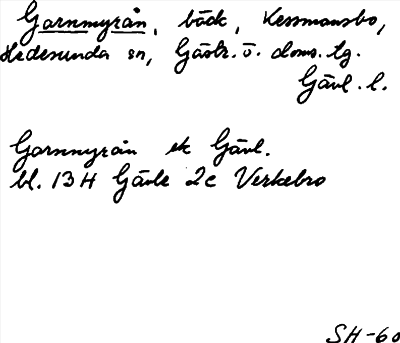 Garnmyrån, bäck, Kessmansbo,
Hedesunda sn, Gästr. ö. doms. tg.
Gävl. l.
Garnmyrån ek Gävl.
bl. 13H Gävle 2c Verkebro
SH-60